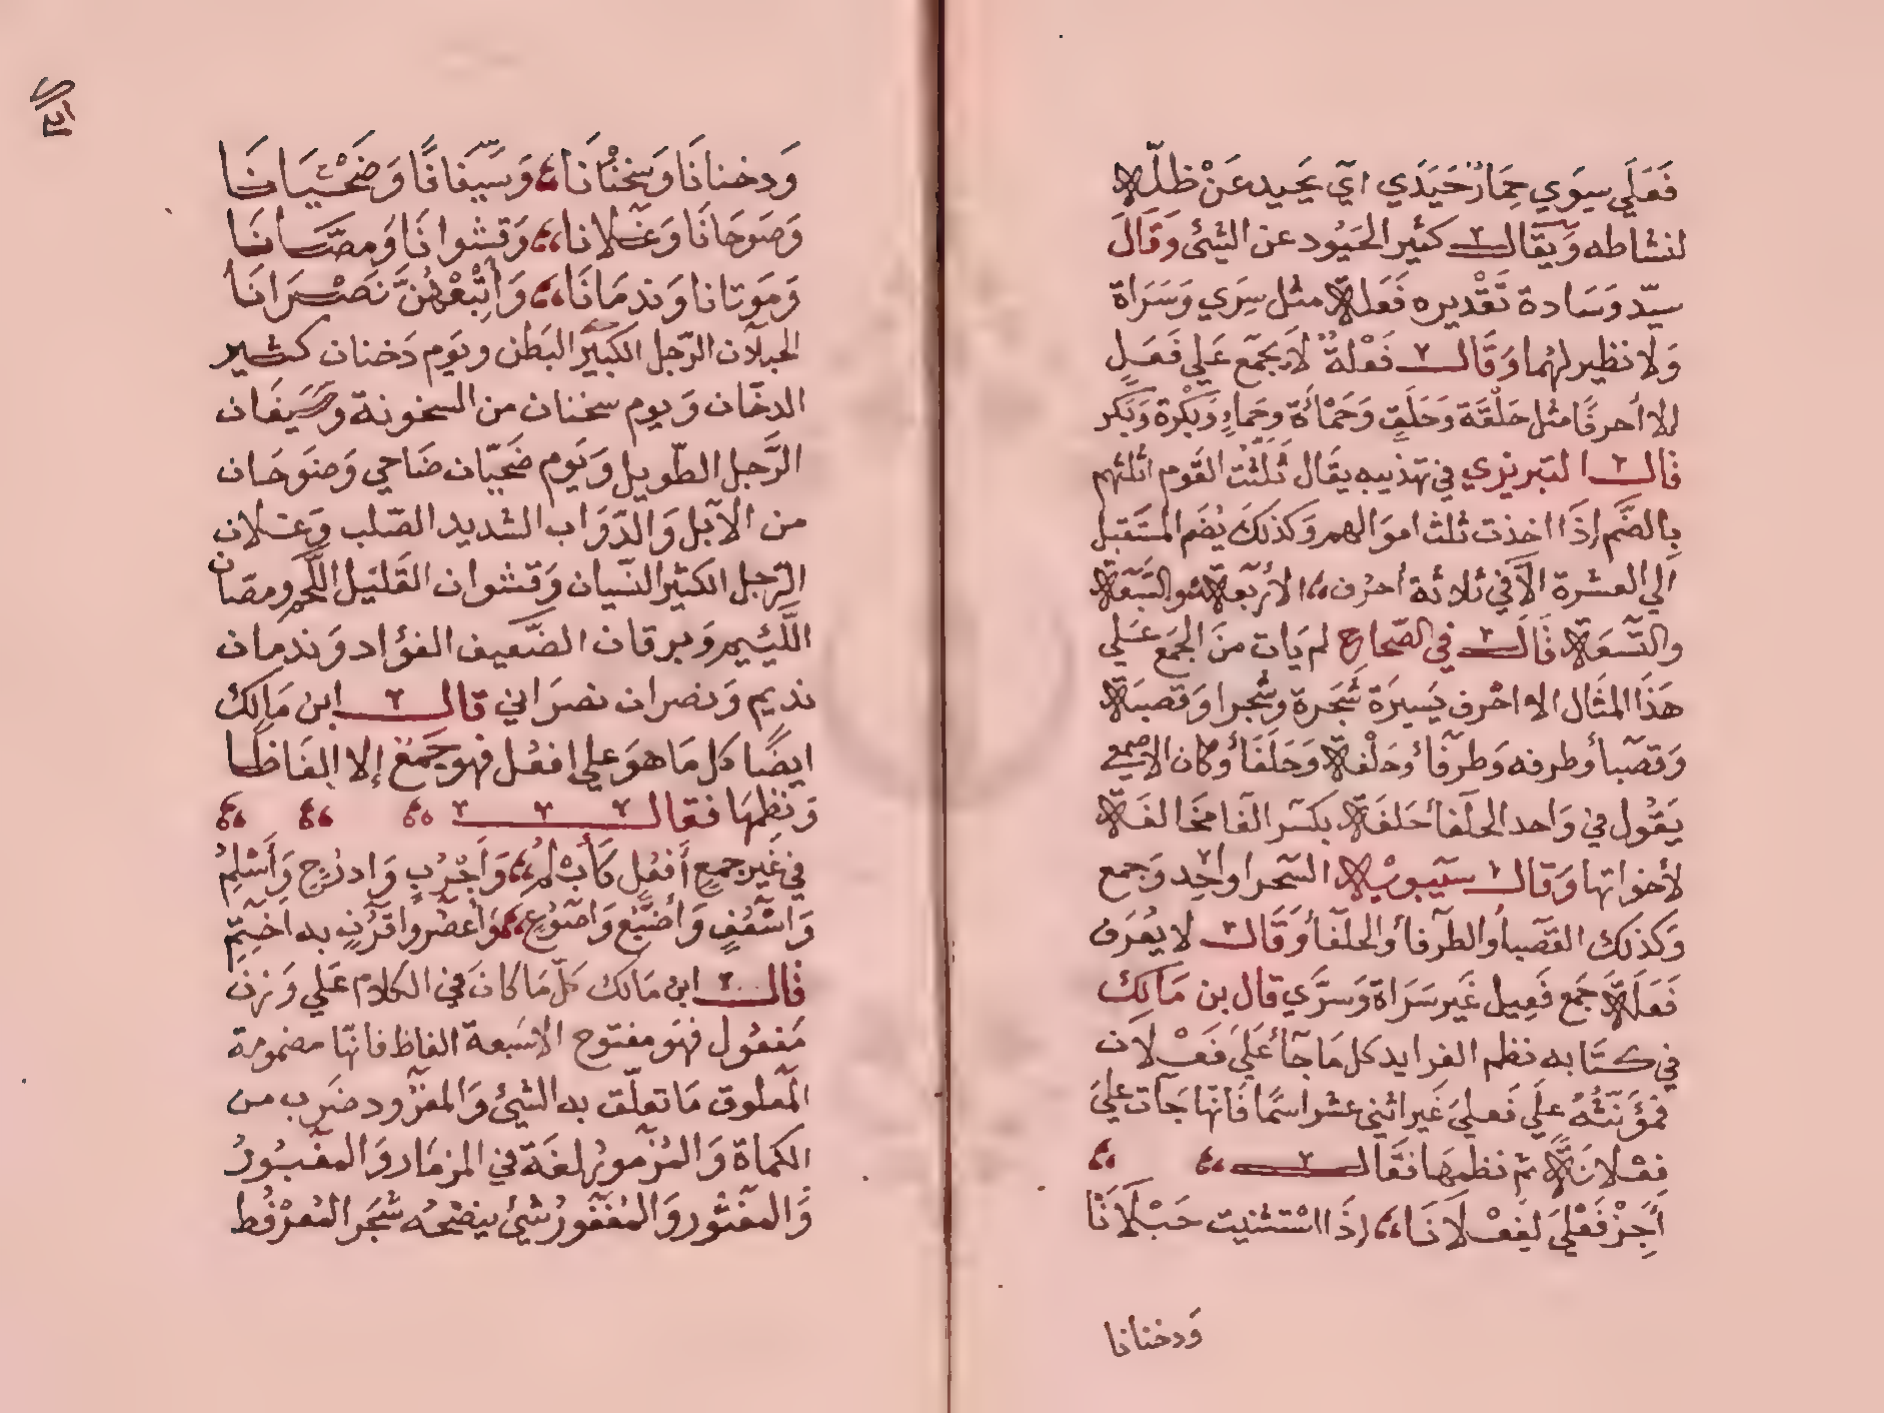 فَعَلَي سِوَي حِمَارٌ حَيَدَي اي يَحيد عَنْ ظلّه
لنشاطه وَيقَال كثير الحَيُود عن الشئ وَقَالَ
سيّد وَسَادة تَقْديره فَعَلة مثل سِرَي وَسَرَاة
وَلا نظير لهُما وَقَال فَعْلةٌ لاَ يجمَع عَلي فَعَلٍ
الا احرفًا مثل حَلْقَة وَحَلَقٍ وَحَمْأة وحَماءٍ وَبَكْرة وَبَكر
قال التبريزي في تهذيبه يقَال ثَلَثْت القَوم اثلثهم
بِالضَّم إذَا اخذت ثلث اموَالهم وَكذلكَ يُضَم المستَقبل
الي العشرة الاَّ في ثلاثة احرُف الأربَعة والسَّبعَة
والتّسعَة قَال في الصّحاح لم يَات منَ الجَمْع عَلي
هَذَا المثَال الا احْرف يَسيرَة شَجَرة وشَجرا وَقصبَة
وَقصَبأ وطرفه وَطرَفأ وحَلْفة وَحَلفَأ وكان الاصمعي
يَقُول في وَاحد الحلفأ حَلفَة بكسر الفا مخَالفَة
لأخواتها وَقال سيبويه الشجرا واحِد وَجمع
وَكذلك القَصَبا والطرفأ والحلفأ وَقَال لا يعُرَف
فَعَلَة جَمع فَعِيل غَير سَرَاة وَسرَّي قال بن مَالِك
في كتَابه نظم الفرايد كل مَا جَأ عَلَي فَعْلاَن
فمؤنّثُهُ علَي فَعلَي غَير اثني عشر اسمًا فَانّها جَآت عَلي
فعْلانَة ثم نظمهَا فقَال
أجِزْ فَعْلَي لفَعْلاَنَا إذَا اسْتثنيت حَبْلاَنَا
وَدخنانا
وَدخنانَا وَسَخنْانَا وَسَيفَانًا وَضَحْيَانَا
وَصَوجَانَا وَعَلانا وَقشوانَا وَمصَّانَا
وَمَوتانا وَندمَانَا وَأتْبعْهُنَّ نَصْرَانَا
الحبلان الرّجل الكبير البَطن ويَوم دَخنان كثير
الدخّان وَيوم سخنان من السخونة وَسَيفَان
الرَّجل الطّويل وَيَوم ضَحيّان ضَاحي وَصَوجَان
من الابل وَالدّوَاب الشديد الصّلب وَعلان
الرّجل الكثير النّسيان وَقشوان القَليَل اللَّحم ومصّان
اللَّئيم وَموتان الضَّعيف الفؤاد وَندمان
نديم وَنصران نصرَاني قال ابن مَالِك
ايضًا كل مَا هوَ علي افعُل فهو جَمعٌ إلا الفَاظًا
وَنظِمهَا فقال
في غَير جمعٍ أَفعُلٍ كَأَبْلُمُ وَأَجْرُبٍ وَادرُجٍ وَأَسْلمُ
وَاسْقُفٍ وَأضبُع وَاصوُعٍ وَأعصُر وَاقرُنٍ به اختمِ
قال ابن مَالك كلّ مَا كانَ في الكلام عَلي وَزن
مَفعُول فهَو مفتوح الا سَبعة الفاظ فانّها مضمومة
المعلوق مَا تعلّق به الشئ وَالمغرُود ضَرب من
الكماة وَالمُزمور لغَة في المزمَار وَالمغبُورُ
وَالمغثور وَالمُغفُور شئ ينضحُه شَجَر العُرْفُط